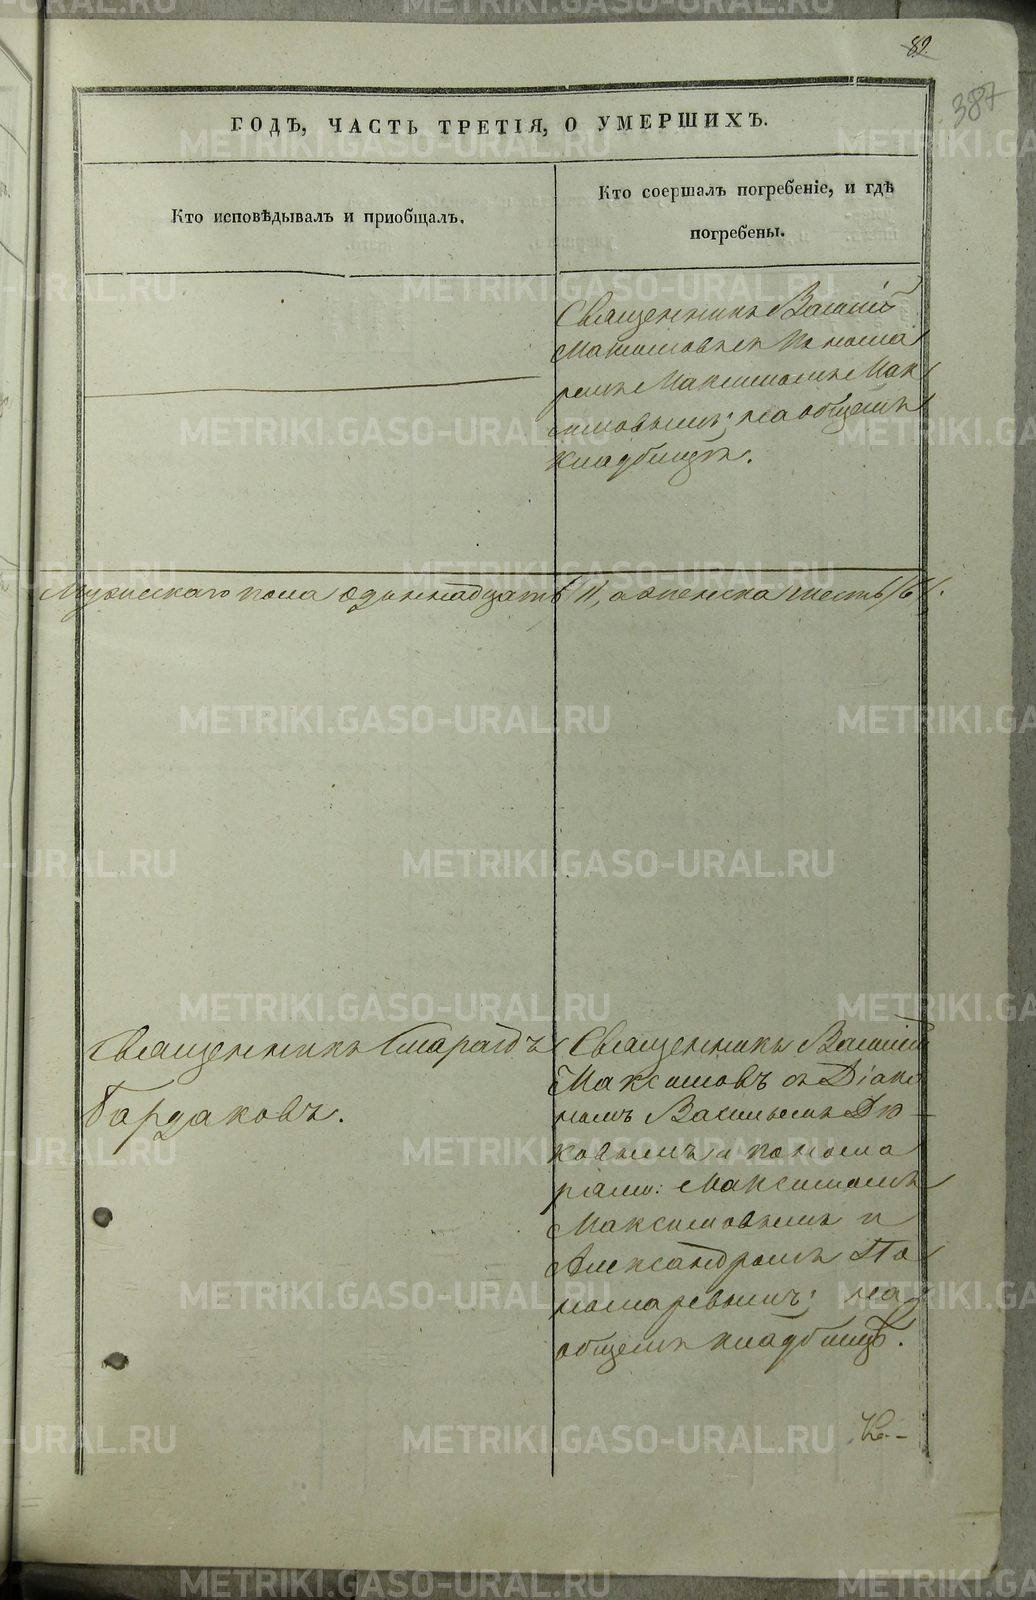 82.
387
ГОДЪ, ЧАСТЬ ТРЕТІЯ, О УМЕРШИХЪ.
Кто исповѣдывалъ и пріобщалъ.
Кто соершалъ погребеніе, и гдѣ
погребены.
Священникъ Василій
Максимовъ съ Понома
ремъ Максимомъ Мак
симовымъ; на общемъ
кладбищѣ.
Мужескаго пола одиннадцать /11/, а женска шесть /6/.
Священникъ Смарагдъ
Бардаковъ.
Священникъ Василій
Максимовъ съ Діако
номъ Васильемъ Дю
ковымъ и понома
рями: Максимомъ
Максимовымъ и
Александромъ По
номаревымъ; на
общемъ кладбищѣ.
METRIKI.GASO-URAL.RU